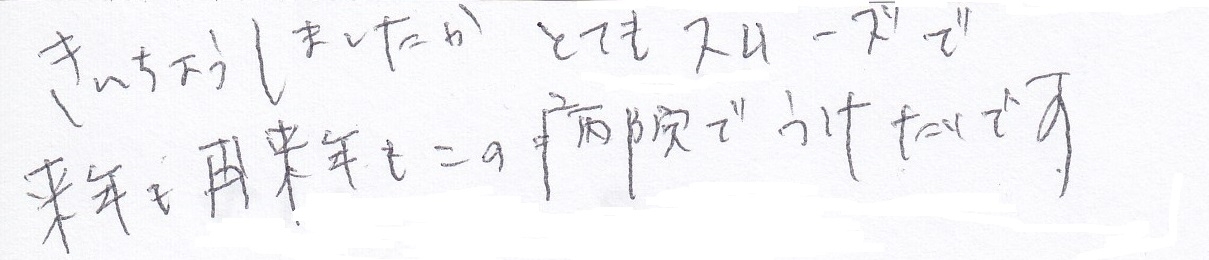 きんちょうしましたが とてもスムーズで
来年も再来年もこの病院でうけたいです